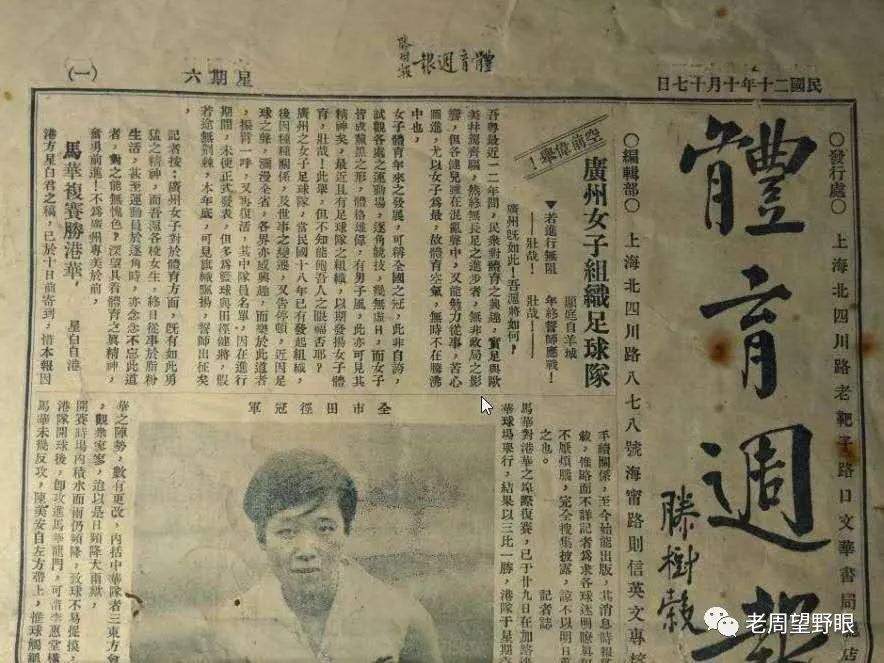 民國二十年十月十七日
體育週報
星期六
(一)
體育週報
滕樹穀
○發行處○ 上海北四川路老靶子路口文華書局總店
○編輯部○ 上海北四川路八七八號海甯路則信英文專校
空前偉舉!
廣州女子組織足球隊
▼若進行無阻 年終誓師應戰!
──壯哉! 壯哉!──
廣州既如此!吾滬將如何?
顧庭自羊城
吾粵最近一二年間,民衆對體育之興趣,實足與歐
美并駕齊驅,然終無長足之進步者,無非政局之影
響,但各健兒雖在混亂聲中,又能勉力從事,苦心
圖進,尤以女子爲最,故體育空氣,無時不在騰沸
中也,
女子體育年來之發展,可稱全國之冠,此非自誇,
試觀各處之運動場,逐角競技,幾無虛日,而女子
皆成黧黑之形,體格雄偉,有男子風,此亦可見其
精神矣,最近且有足球隊之組織,以期發揚女子體
育,壯哉!此舉,但不知能飽吾人之眼福否耶?
廣州之女子足球隊,當民國十八年已有發起組織,
後因種種關係,及世事之變遷,又告停頓,近因足
球之聲,瀰漫全省,各界亦感興趣,而樂於此道者
,振臂一呼,又再復活,其中隊員名單,因在進行
期間,未便正式發表,但多爲籃球與田徑健將,假
若途無荊棘,本年底,可見旗幟飄揚,誓師出征矣
,
記者按:廣州女子對於體育方面,既有如此勇
猛之精神,而吾滬各校女生,終日從事於脂粉
生活,甚至運動員於逐角時,亦念念不忘此道
者,對之能無愧色?深望具着體育之眞精神,
奮勇前進!不爲廣州專美於前,
馬華複賽勝港華,
星白自港
港方星白君之稿,已於十日前寄到,惜本報因
手續關係,至今始能出版,其消息時報
載,惟略而不詳記者爲求各球迷明瞭眞
不厭煩贅,完全搜集披露,諒不以明日
之也。
記者誌
馬華對港華之埠際復賽,已于廿九日在加路
華球場舉行,結果以三比一勝,港隊于星期
全市田徑冠軍
華之陣勢,數有更改,內括中華隊者三東方
,觀衆寥寥,迨以是日頻降大雨歟,
開賽時場內積水而雨仍頻降,致球不易捉摸,
港隊開球後,卽攻進馬華龍門,可惜李惠堂
馬華未幾反攻,陳美安自左方帶上,惟球觸
老周望野眼